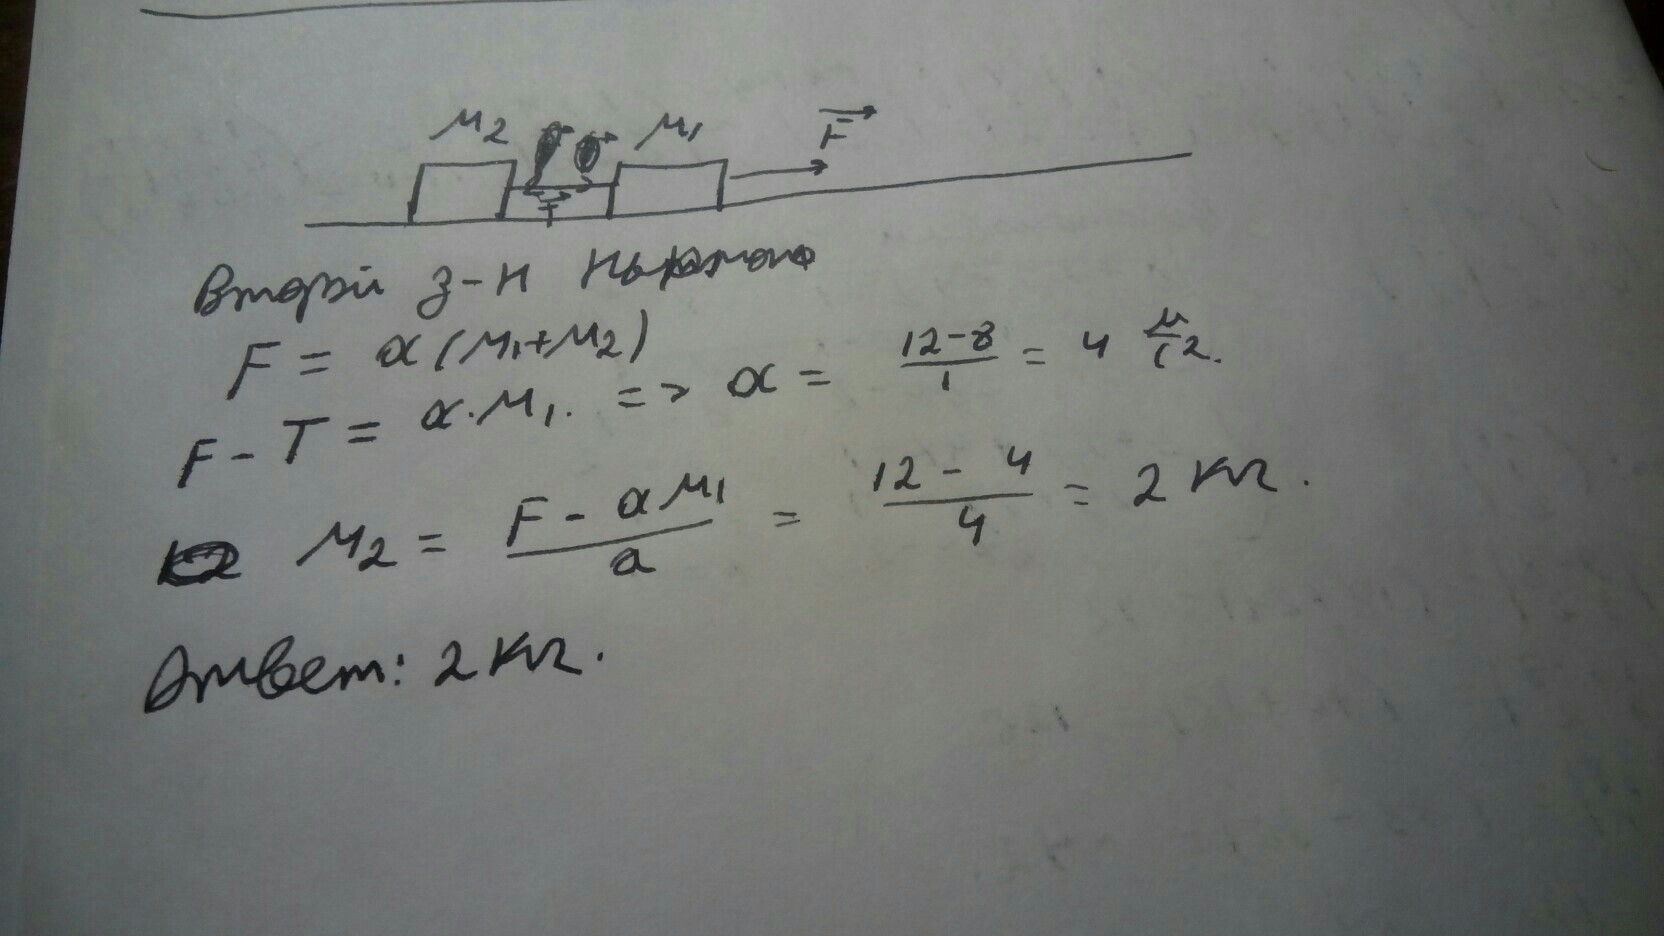 M2 M1 F
T
Второй з-н Ньютона
F = a(M1+M2)
F - T = a·M1. => a = (12-8)/1 = 4 м/с2.
M2 = (F - aM1)/a = (12 - 4)/4 = 2 кг.
Ответ: 2 кг.